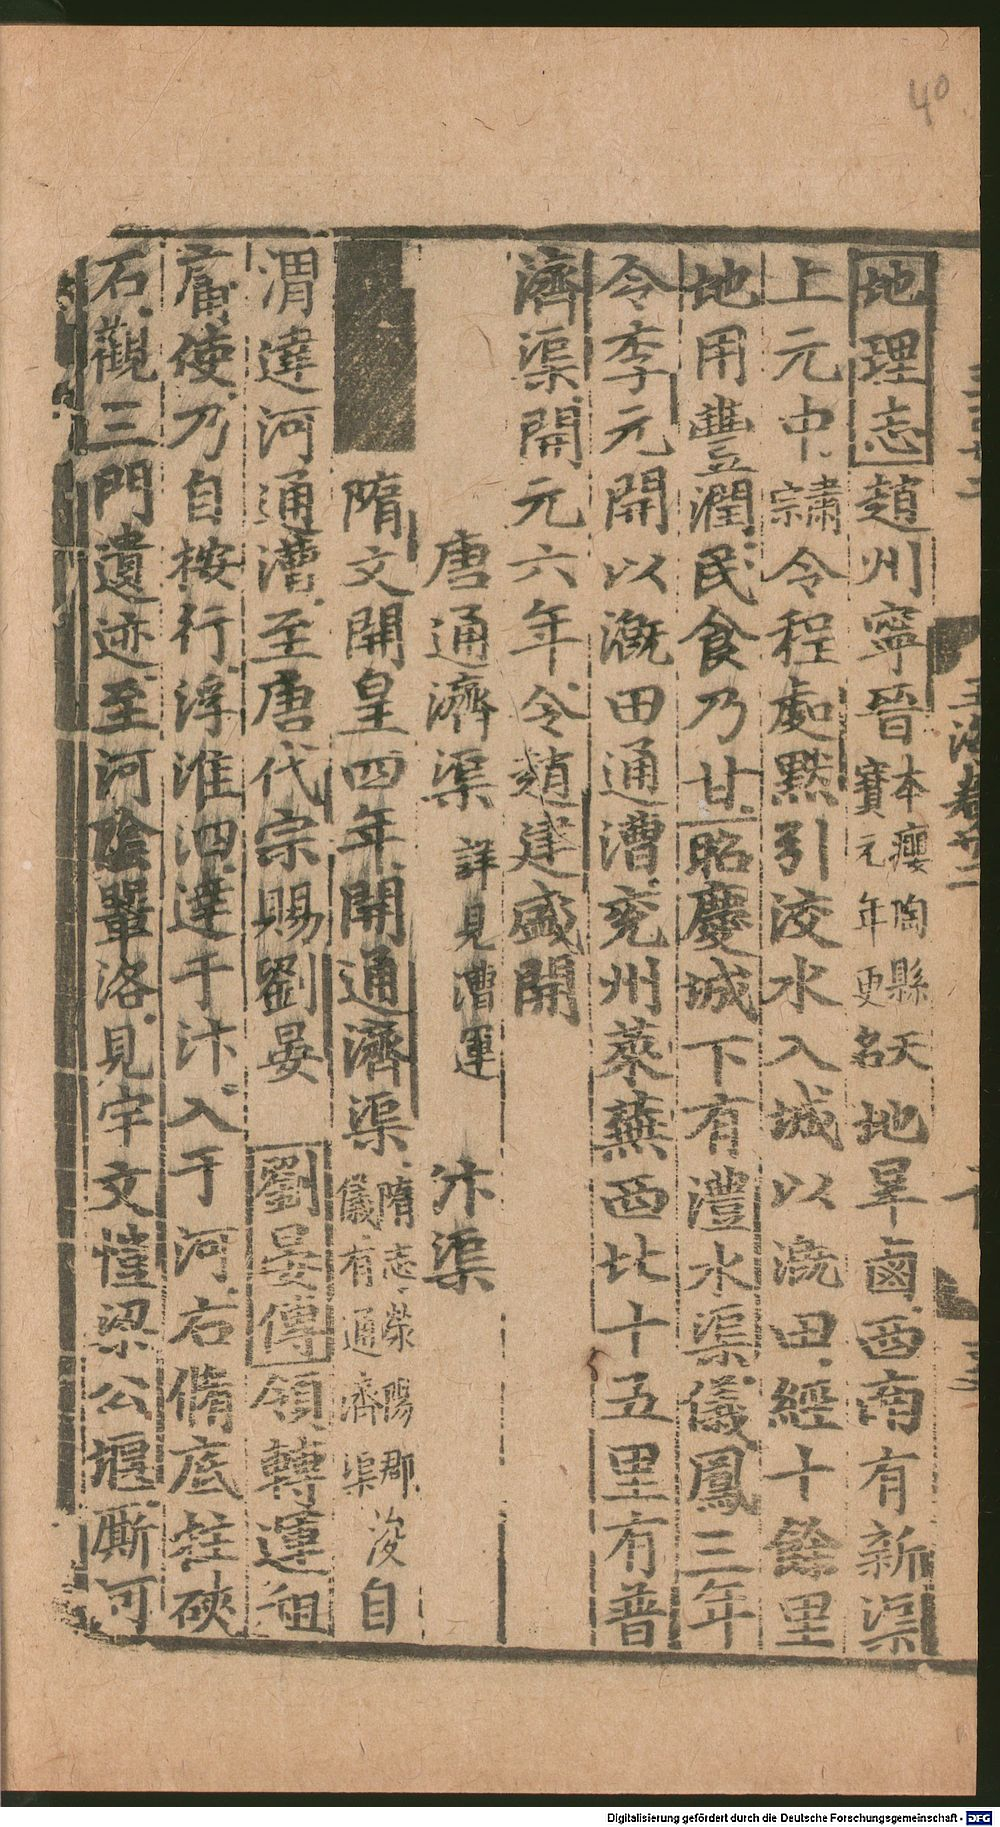 40
地理志趙州寧晉本癭陶縣天寶元年更名地旱鹵西南有新渠
上元中䆿令程處黙引洨水入城以漑田經十餘里
地用豐潤民食乃甘昭慶城下有澧水渠儀鳳三年
令李元開以漑田通漕兖州萊蕪西比十五里有普
濟渠開元六年令趙建盛開
唐通濟渠詳見漕運 汴渠
隋文開皇四年開通濟渠隋志滎陽郡浚儀有通濟渠自
渭達河通漕至唐代宗賜劉晏 劉晏傳領轉運租
庸使乃自桉行浮淮泗達于汴入于河右循底柱硤
石觀三門遺迹至河陰鞏洛見宇文愷梁公堰厮河
玉海卷廿二
Digitalisierung gefördert durch die Deutsche Forschungsgemeinschaft - DFG